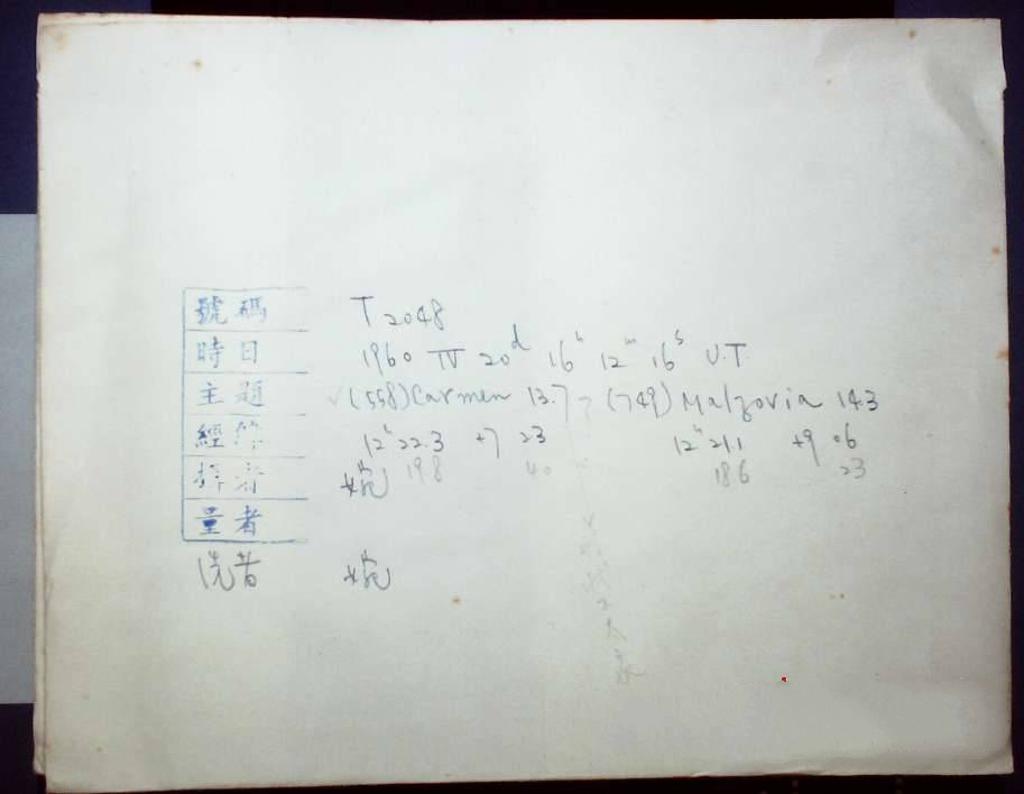 號碼 T 2048
時日 1960 IV 20d 16h 12m 16s U.T.
主題 √(558) Carmen 13.7 (749) Malzovia 14.3
經緯 12h 22.3 +7 23 12h 21.1 +9 06
者 婉 198 40 186 23
量者
洗者 婉